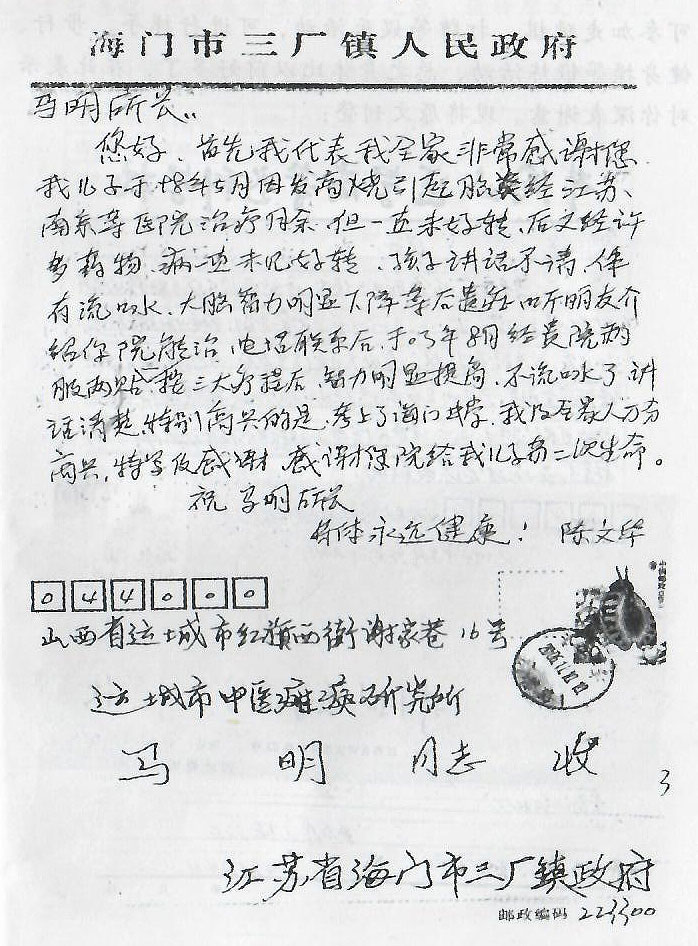 海门市三厂镇人民政府
马明所长:
您好、首先我代表我全家非常感谢您
我儿子于98年5月因发高烧引起脑炎经江苏、
南京等医院治疗月余、但一直未好转、后又经许
多药物、病一直未见好转、孩子讲话不清、伴
有流口水、大脑智力明显下降等后遗症、听朋友介
绍你院能治、电话联系后、于03年8月经贵院内
服两贴、按三大疗程后、智力明显提高、不流口水了、讲
话清楚、特别高兴的是、考上了海门中学、我及全家人万分
高兴、特写及感谢、感谢你院给我儿子第二次生命。
祝马明所长
身体永远健康! 陈文华
044000
山西省运城市红旗西街谢家巷16号
运城市中医癫痫研究所
马 明 同志 收
3
江苏省海门市三厂镇政府
邮政编码